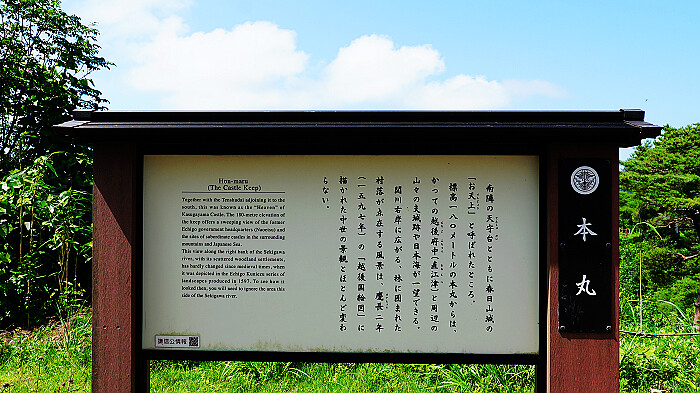 Hon-maru
(The Castle Keep)
Together with the Tenshudai adjoining it to the
south, this was known as the "Heaven" of
Kasugayama Castle. The 180-metre elevation of
the keep offers a sweeping view of the former
Echigo government headquarters (Naoetsu) and
the sites of subordinate castles in the surrounding
mountains and Japanese Sea.
This view along the right bank of the Sekigawa
river, with its scattered woodland settlements,
has hardly changed since medieval times, when
it was depicted in the Echigo Kuniezu series of
landscapes produced in 1597. To see how it
looked then, you will need to ignore the area this
side of the Sekigawa river.
謙信公情報
南隣の天守台とともに春日山城の
「お天上」と呼ばれたところ。
標高一八〇メートルの本丸からは、
かつての越後府中（直江津）と周辺の
山々の支城跡や日本海が一望できる。
関川右岸に広がる、林に囲まれた
村落が点在する風景は、慶長二年
（一五九七年）の「越後国絵図」に
描かれた中世の景観とほとんど変わ
らない。
本丸